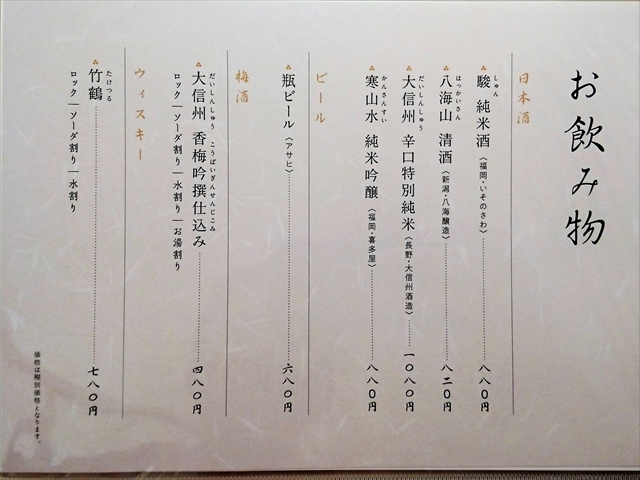 お飲み物
日本酒
駿 純米酒〈福岡・いそのさわ〉 八八〇円
八海山 清酒〈新潟・八海醸造〉 八二〇円
大信州 辛口特別純米〈長野・大信州酒造〉 一〇八〇円
寒山水 純米吟醸〈福岡・喜多屋〉 八八〇円
ビール
瓶ビール〈アサヒ〉 六八〇円
梅酒
大信州 香梅吟撰仕込み 四八〇円
ロック|ソーダ割り|水割り|お湯割り
ウィスキー
竹鶴 七八〇円
ロック|ソーダ割り|水割り
価格は税別価格となります。
しゅん
はっかいさん
だいしんしゅう
かんさんすい
だいしんしゅう こうばいぎんせんじこみ
たけつる